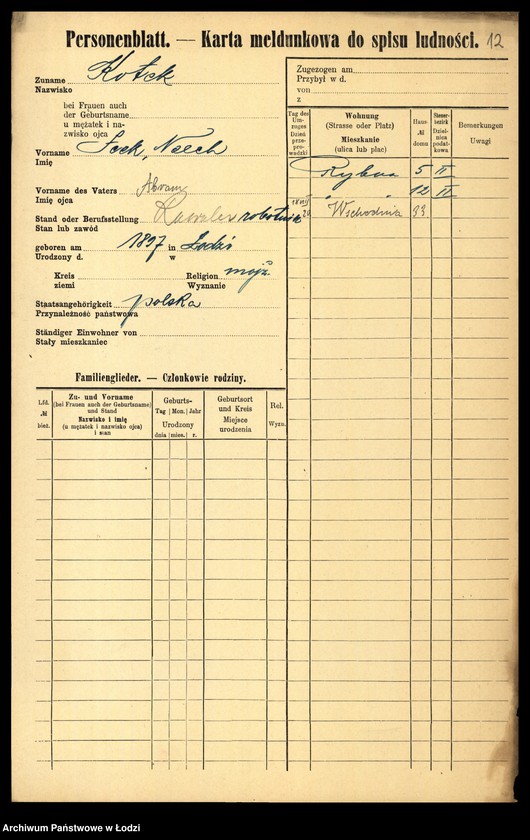 Personenblatt. — Karta meldunkowa do spisu ludności. 12
Zuname Kotek
Nazwisko
bei Frauen auch
der Geburtsname
u mężatek i na-
zwisko ojca
Vorname Icek,
Imię
Vorname des Vaters Abram
Imię ojca
Stand oder Berufsstellung robotnik
Stan lub zawód
geboren am 1897 in Łodzi
Urodzony d. w
Kreis Religion mojż.
ziemi Wyznanie
Staatsangehörigkeit polska
Przynależność państwowa
Ständiger Einwohner von
Stały mieszkaniec
Zugezogen am
Przybył w d.
von
z
Tag des Um-zuges Dzień prze-pro-wadzki
Wohnung
(Strasse oder Platz)
Mieszkanie
(ulica lub plac)
Haus-
№
domu
Steuer-
bezirk
Dzielnica
podat-
kowa
Bemerkungen
Uwagi
Rybna 5 II
" 12 II
20 Wschodnia 33
Familienglieder. — Członkowie rodziny.
Lfd.
№
bież.
Zu- und Vorname
(bei Frauen auch der Geburtsname)
und Stand
Nazwisko i imię
(u mężatek i nazwisko ojca)
i stan
Geburts-
Tag Mon. Jahr
Urodzony
dnia mies. r.
Geburtsort
und Kreis
Miejsce
urodzenia
Rel.
Wyzn.
Archiwum Państwowe w Łodzi